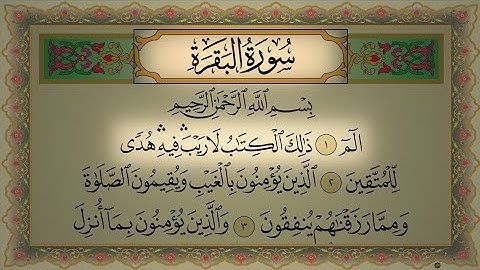 سُورَةُ الْبَقَرَةِ
بِسْمِ اللَّهِ الرَّحْمَٰنِ الرَّحِيمِ
الٓمٓ ١ ذَٰلِكَ الْكِتَٰبُ لَا رَيْبَ ۛ فِيهِ ۛ هُدًى
لِّلْمُتَّقِينَ ٢ الَّذِينَ يُؤْمِنُونَ بِالْغَيْبِ وَيُقِيمُونَ الصَّلَوٰةَ
وَمِمَّا رَزَقْنَٰهُمْ يُنفِقُونَ ٣ وَالَّذِينَ يُؤْمِنُونَ بِمَا أُنزِلَ